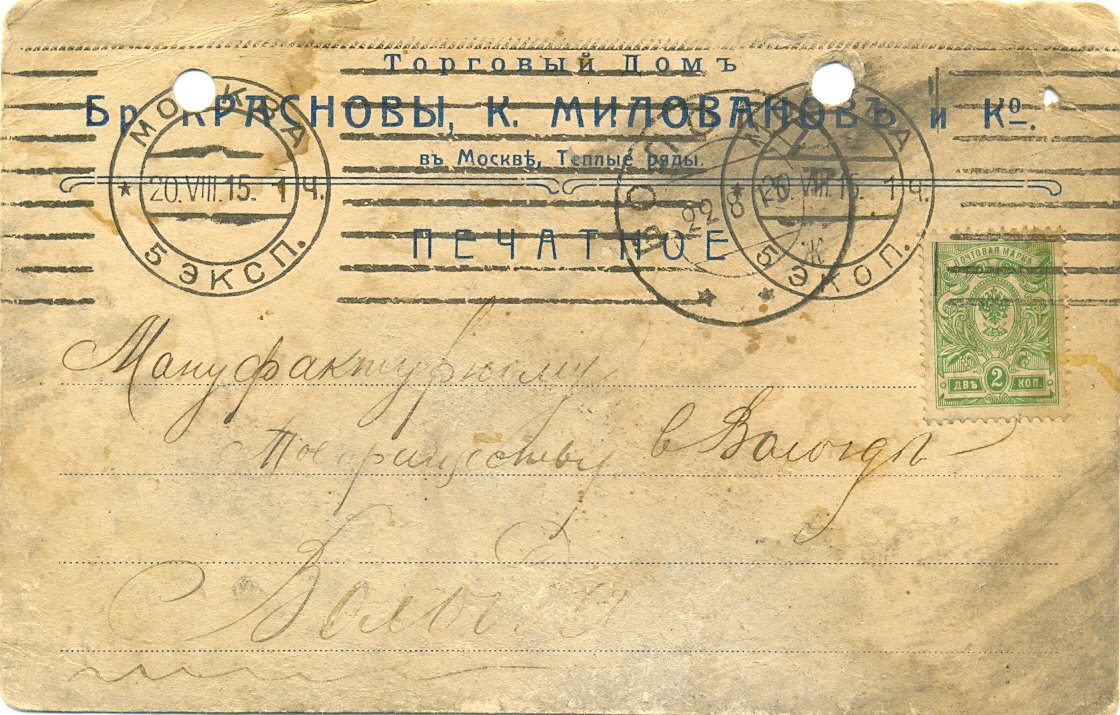 Торговый Домъ
Бр. КРАСНОВЫ, К. МИЛОВАНОВЪ и Ко.
въ Москвѣ, Теплые ряды.
ПЕЧАТНОЕ
МОСКВА
20.VIII.15. 1 Ч.
5 ЭКСП.
МОСКВА
20.VIII.15. 1 Ч.
5 ЭКСП.
22 8 15
ПОЧТОВАЯ МАРКА
ДВѢ 2 КОП.
Мануфактурному
Товариществу в Вологдѣ
Вологда